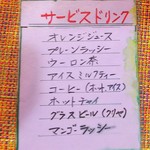 サービスドリンク
オレンジジュース
プレーンラッシー
ウーロン茶
アイスミルクティー
コーヒー(ホット,アイス)
ホットチャイ
グラスビール(クリヤ)
マンゴラッシー